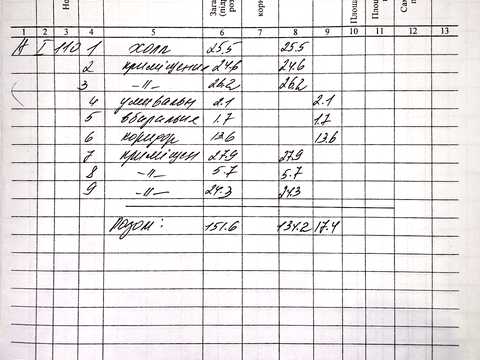 Но
Зага
(під
роз
кори
1 2 3 4 5 6 7 8 9 10 11 12 13
А I 110 1 хол 25.5 25.5
2 приміщення 24.6 24.6
3 -"- 26.2 26.2
4 умивальн 2.1 2.1
5 вбиральня 1.7 1.7
6 коридор 13.6 13.6
7 приміщен 27.9 27.9
8 -"- 5.7 5.7
9 -"- 24.3 24.3
Разом: 151.6 134.2 17.4